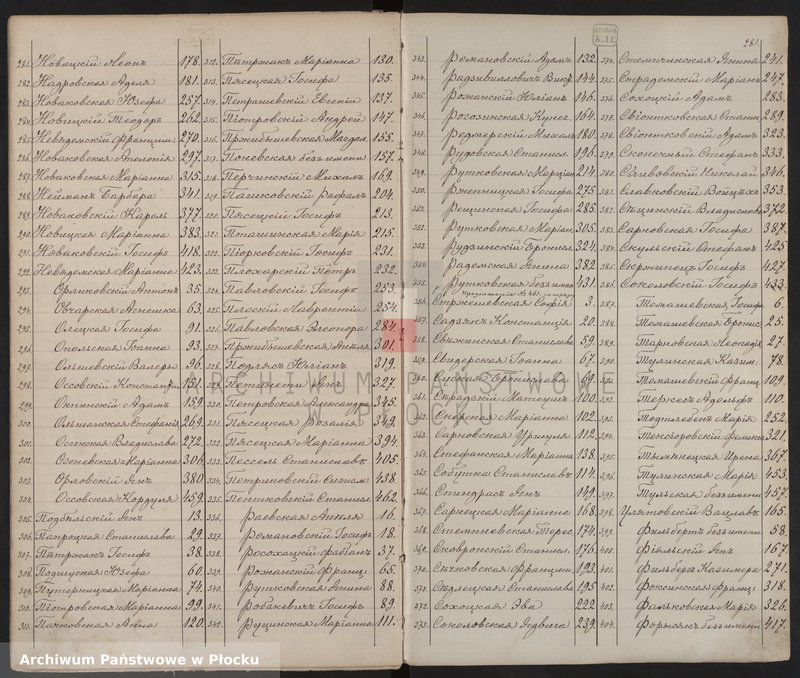 281
281. Новацкій Леонъ 178.
282. Надровская Аделя 181.
283. Новаковская Юзефа 257.
284. Новицкій Теодоръ 262.
285. Невядомскій Францишекъ 270.
286. Новаковская Аполонія 297.
287. Новаковская Маріанна 315.
288. Нейманъ Барбара 341.
289. Новаковскій Кароль 377.
290. Новицкая Маріанна 383.
291. Новаковскій Іосифъ 418.
292. Невядомская Маріанна 423.
293. Орликовскій Антонъ 35.
294. Овчарская Агнешка 63.
295. Олецкая Іосифа 91.
296. Опольская Іоанна 93.
297. Ольшевскій Валеры 96.
298. Оссовскій Констант 151.
299. Окнинскій Адамъ 159.
300. Ольшанская Стефанія 269.
301. Осинская Владислава 272.
302. Огневская Маріанна 306.
303. Орловскій Янъ 380
304. Осовская Кордуля 459.
305. Подбѣльскій Янъ 13.
306. Папроцкая Станислава 29.
307. Пѣтржакъ Іосифъ 38.
308. Подгуская Юзефа 60.
309. Путерницкая Маріанна 74.
310. Піотровская Маріанна 99.
311. Пачковская Анна 120.
312. Пѣтржакъ Маріанна 130.
313. Пясецкая Іосифа 135.
314. Петрашевскій Евгеній 137.
315. Піотровскій Андрей 147.
316. Пржибышевская Магдал. 155.
317. Поневская безъ имени 157.
318. Перчинскій Михалъ 169.
319. Панековскій Рафалъ 204.
320. Пясецкій Іосифъ 213.
321. Пташинская Марія 215.
322. Піорковскій Іосифъ 231.
323. Плохарскій Петръ 232.
324. Павловскій Іосифъ 253.
325. Плоскій Лаврентій 254.
326. Павловская Элеонора 284.
327. Пржибышевская Анеля 301.
328. Подлясъ Юліанъ 319.
329. Янъ 327.
330. Петровская Александра 345.
331. Пясецкая Розалія 349.
332. Пясецкая Маріанна 394.
333. Пессель Станиславъ 405.
334. Петриковскій 438.
335. Пентковскій Станисл. 462.
336. Раевская Анеля 16.
337. Романовскій Іосифъ 18.
338. Росохацкій Фабіанъ 37.
339. Рожанскій Франц. 65.
340. Рутковская Янина 88.
341. Робакевичъ Іосифъ 89.
342. Рущинская Маріанна 111.
343. Романовскій Адамъ 132
344. Радзивилловичъ Викт. 144.
345. Рожанскій Юліанъ 146.
346. Рогозинская Кунег. 164.
347. Редмерскій Михалъ 180.
348. Рудовская Станисл. 196.
349. Рутковская Маріан 214.
350. Ржепницкая Іосифа 275
351. Рещинская Іосифа 285.
352. Рутковская Маріан. 305.
353. Рудзинскій Брониcл. 324.
354. Радомская Янина 382
355. Рутковская безъ имени 431.
356. Стржешевская Софія 3.
357. Садзякъ Констанція 20.
358. Свѣжинская Станислава 59.
359. Свидерская Іоанна 67.
360. Суская Брониcлава 69.
361. Сѣрадзкій Матеушъ 100.
362. Сѣкерская Маріанна 102.
363. Сарновская Уршуля 112.
364. Стефанская Маріанна 138.
365. Собутка Станиславъ 114.
366. Спиндрасъ Янъ 149.
367. Сарнецкая Маріанна 168.
368. Стемпневская Терес. 174.
369. Сковронскій Станисл. 176.
370. Сѣчковскій Францишк. 193.
371. Сѣдлецкая Станислава 195
372. Сохоцкая Эва 222
373. Соколовская Ядвига 239.
374. Стемпчинская Янина 241.
375. Страдомскій Маріанъ 247.
376. Сохоцкій Адамъ 283.
377. Свіонтковская Стани 289.
378. Свіонтковскій Адамъ 323.
379. Сконечный Стефанъ 333.
380. Сливовскій Николай 346.
381. Славковскій Войцѣхъ 353.
382. Сѣцинскій Владиславъ 372.
383. Сарновская Іосифа 387.
384. Скульскій Стефанъ 425
385. Скржинецъ Іосифъ 427.
386. Соколовскій Іосифъ 433.
387. Томашевская Іосифа 6.
388. Томашевская Брониc 25.
389. Тарновская Леокадія 27.
390. Тулинская Казим. 78.
391. Томашевскій Франц 109.
392. Теркесъ Адольфъ 110.
393. Подтлебенъ Марія 252.
394. Тенсіоровскій Феликс 321.
395. Тымянецкая Ирена 367.
396. Тулинская Марія 453.
397. Тульская безъ имени 457.
398. Улятовскій Вацлавъ 165.
399. Фильбертъ безъ имени 58.
400. Фіяльскій Янъ 167.
401. Фильберъ Казимира 271.
402. Фоксинская Франц 318.
403. Фальковская Марія 326.
404. Форысякъ безъ имени 417.
ARCHIWUM PAŃSTWOWE
W PŁOCKU
Archiwum Państwowe w Płocku